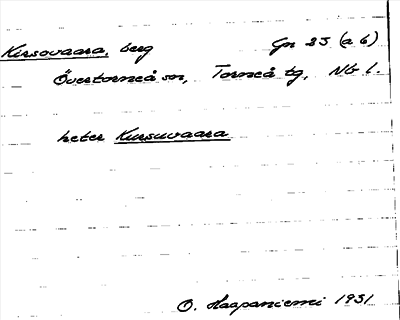 Kirsovaara, berg Gn 25 (a 6)
Övertorneå sn, Torneå tg, Nb l.
heter Kursuvaara
O. Haapaniemi 1931